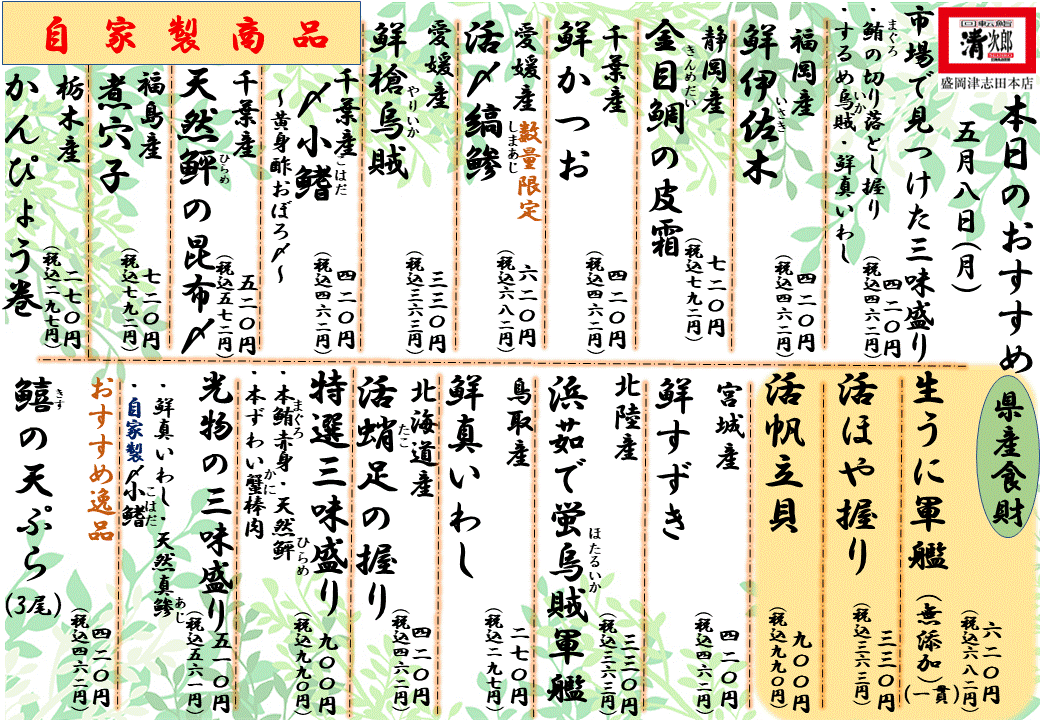 回転鮨
清次郎
盛岡津志田本店
本日のおすすめ
五月八日(月)
市場で見つけた三味盛り
・鮪の切り落とし握り
まぐろ
・するめ烏賊・鮮真いわし
いか
四二〇円
(税込四六二円)
福岡産
鮮伊佐木
いさき
四二〇円
(税込四六二円)
静岡産
金目鯛の皮霜
きんめだい
七二〇円
(税込七九二円)
千葉産
鮮かつお
四二〇円
(税込四六二円)
愛媛産
数量限定
活〆縞鯵
しまあじ
六二〇円
(税込六八二円)
愛媛産
鮮槍烏賊
やりいか
三三〇円
(税込三六三円)
自家製商品
千葉産
〆小鰭
こはだ
〜黄身酢おぼろ〆〜
四二〇円
(税込四六二円)
千葉産
天然鮃の昆布〆
ひらめ
五二〇円
(税込五七二円)
福島産
煮穴子
七二〇円
(税込七九二円)
栃木産
かんぴょう巻
二七〇円
(税込二九七円)
県産食財
生うに軍艦
(無添加)
(一貫)
六二〇円
(税込六八二円)
活ほや握り
三三〇円
(税込三六三円)
活帆立貝
九〇〇円
(税込九九〇円)
宮城産
鮮すずき
四二〇円
(税込四六二円)
北陸産
浜茹で蛍烏賊軍艦
ほたるいか
三三〇円
(税込三六三円)
鳥取産
鮮真いわし
二七〇円
(税込二九七円)
北海道産
活蛸足の握り
たこ
四二〇円
(税込四六二円)
特選三味盛り
・本鮪赤身・天然鮃
まぐろ
ひらめ
・本ずわい蟹棒肉
かに
九〇〇円
(税込九九〇円)
光物の三味盛り
・鮮真いわし・天然真鯵
あじ
・自家製〆小鰭
こはだ
五一〇円
(税込五六一円)
おすすめ逸品
鱚の天ぷら
きす
(3尾)
四二〇円
(税込四六二円)